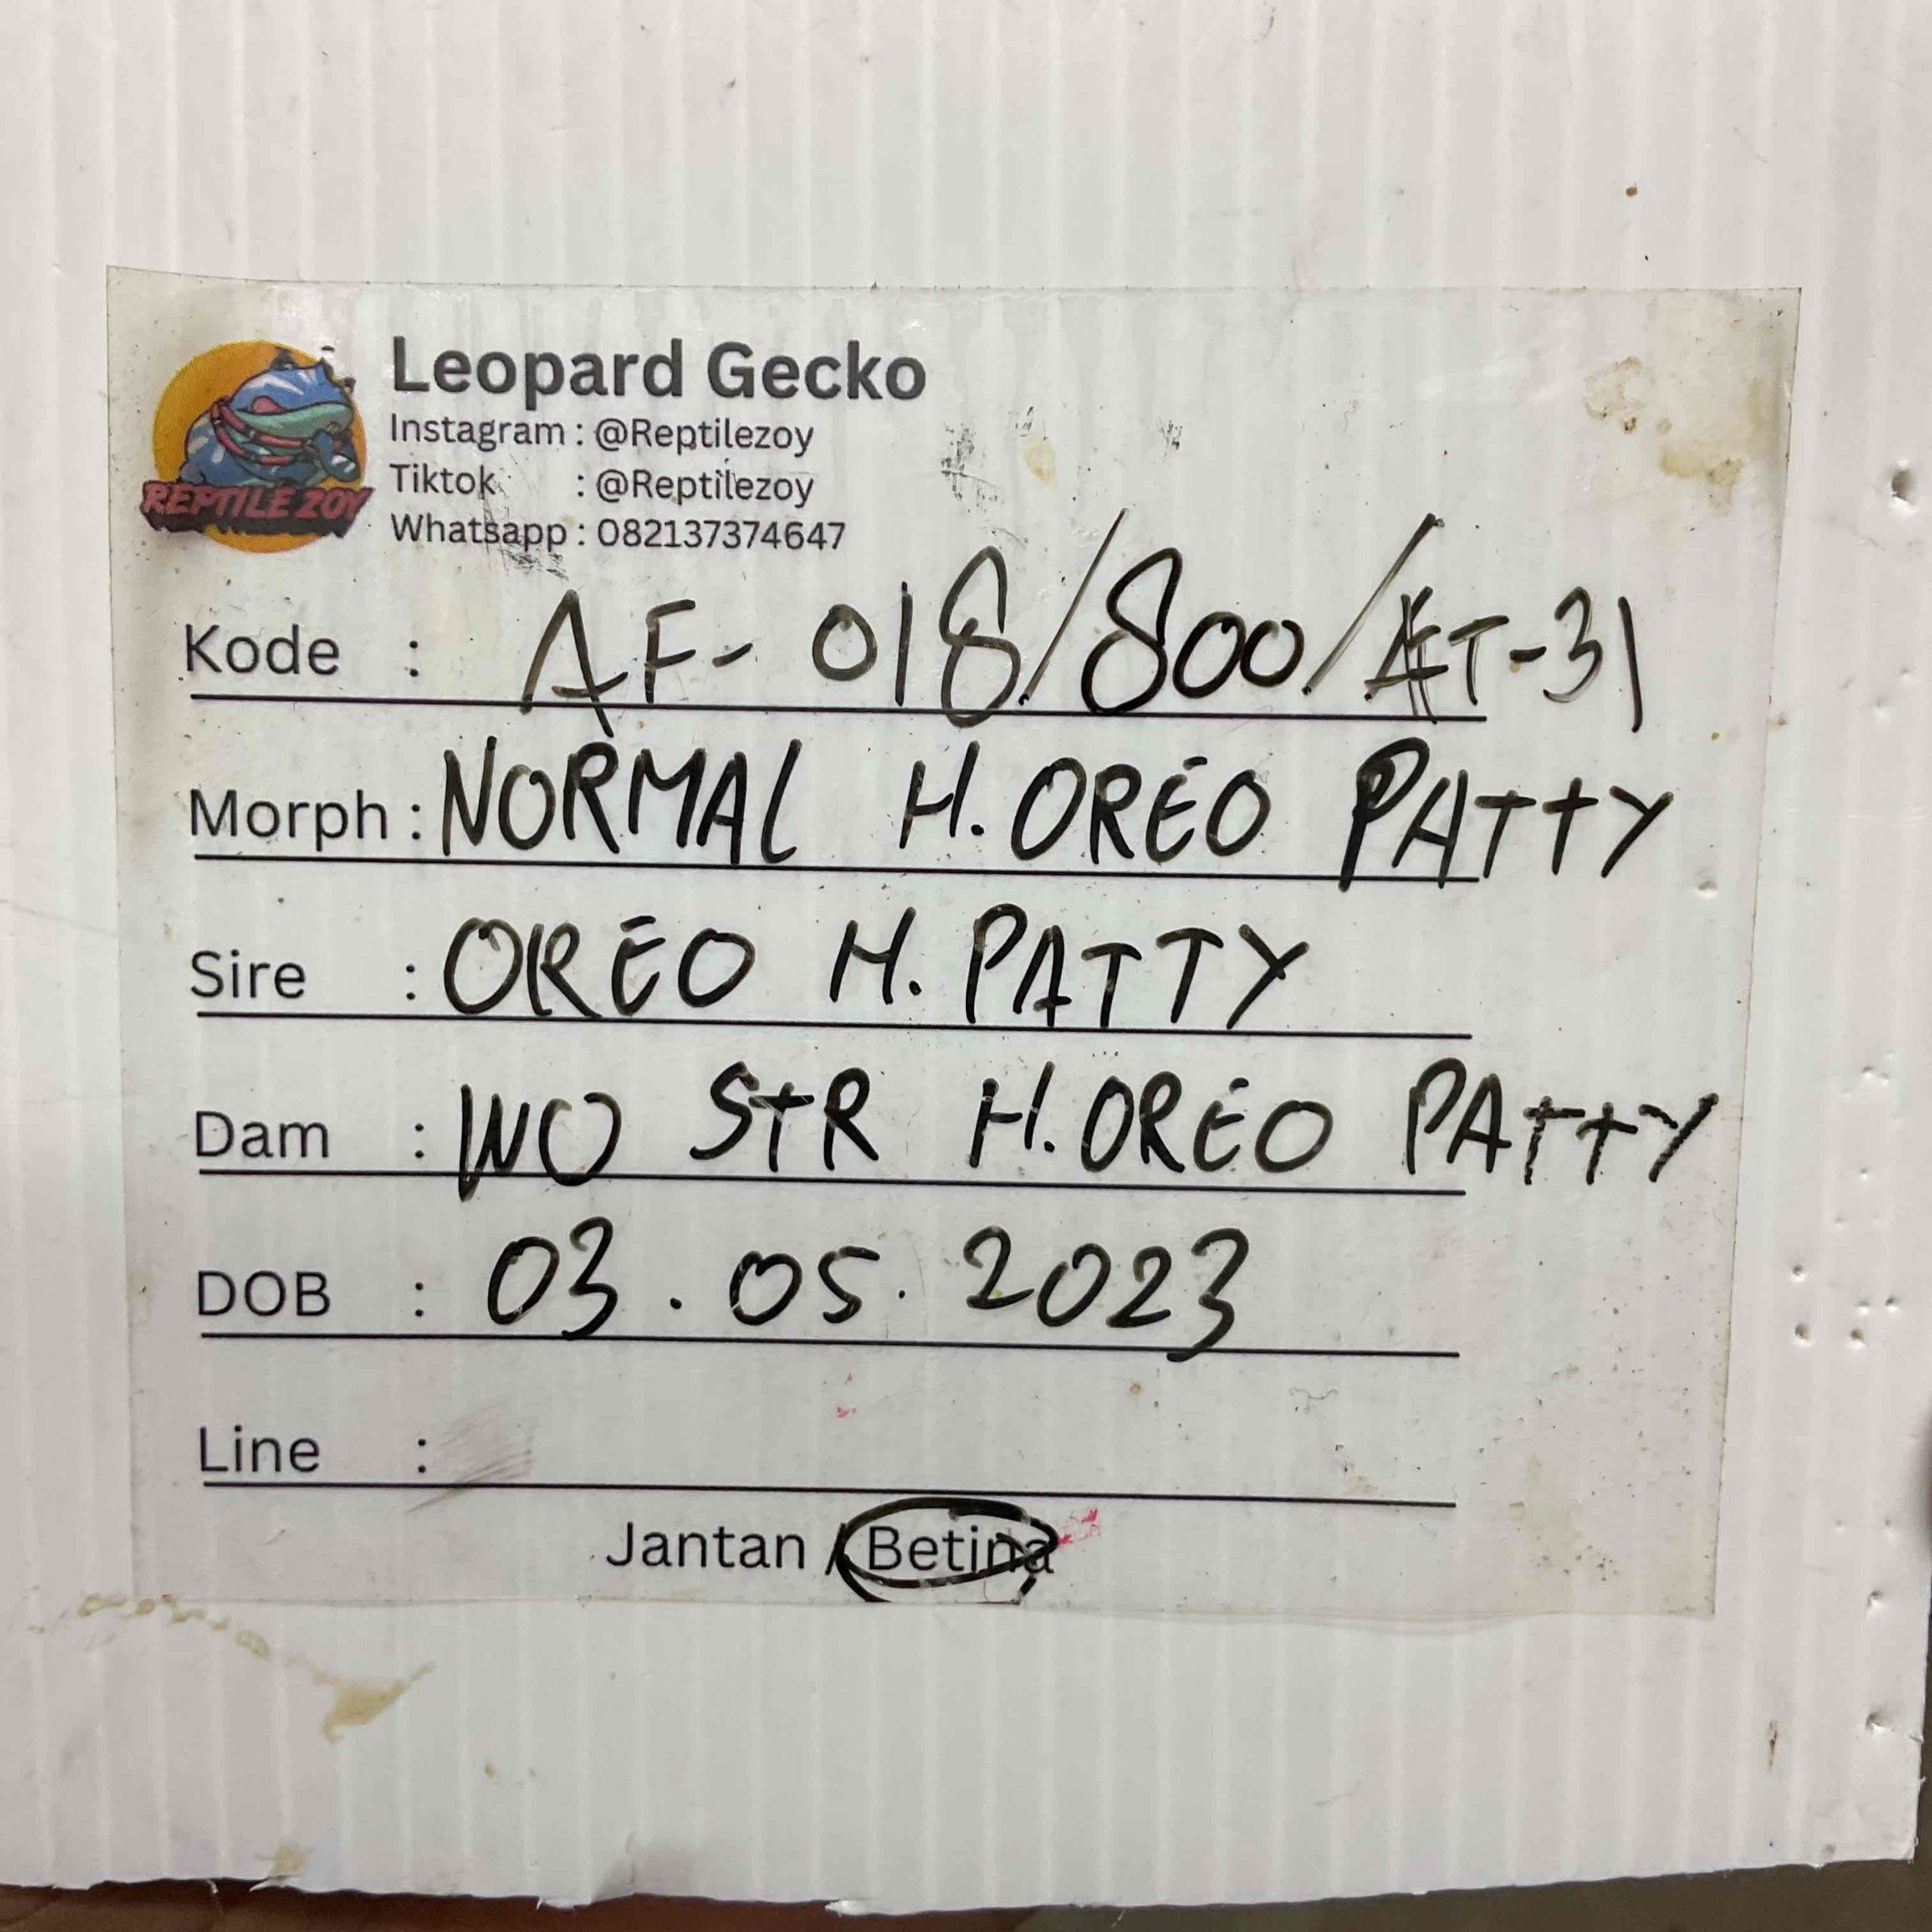 Leopard Gecko
Instagram : @Reptilezoy
Tiktok : @Reptilezoy
Whatsapp : 082137374647
REPTILE ZOY
Kode : AF- 018/800/ET-31
Morph : NORMAL H. OREO PATTY
Sire : OREO H. PATTY
Dam : WO STR H. OREO PATTY
DOB : 03.05.2023
Line :
Jantan / Betina